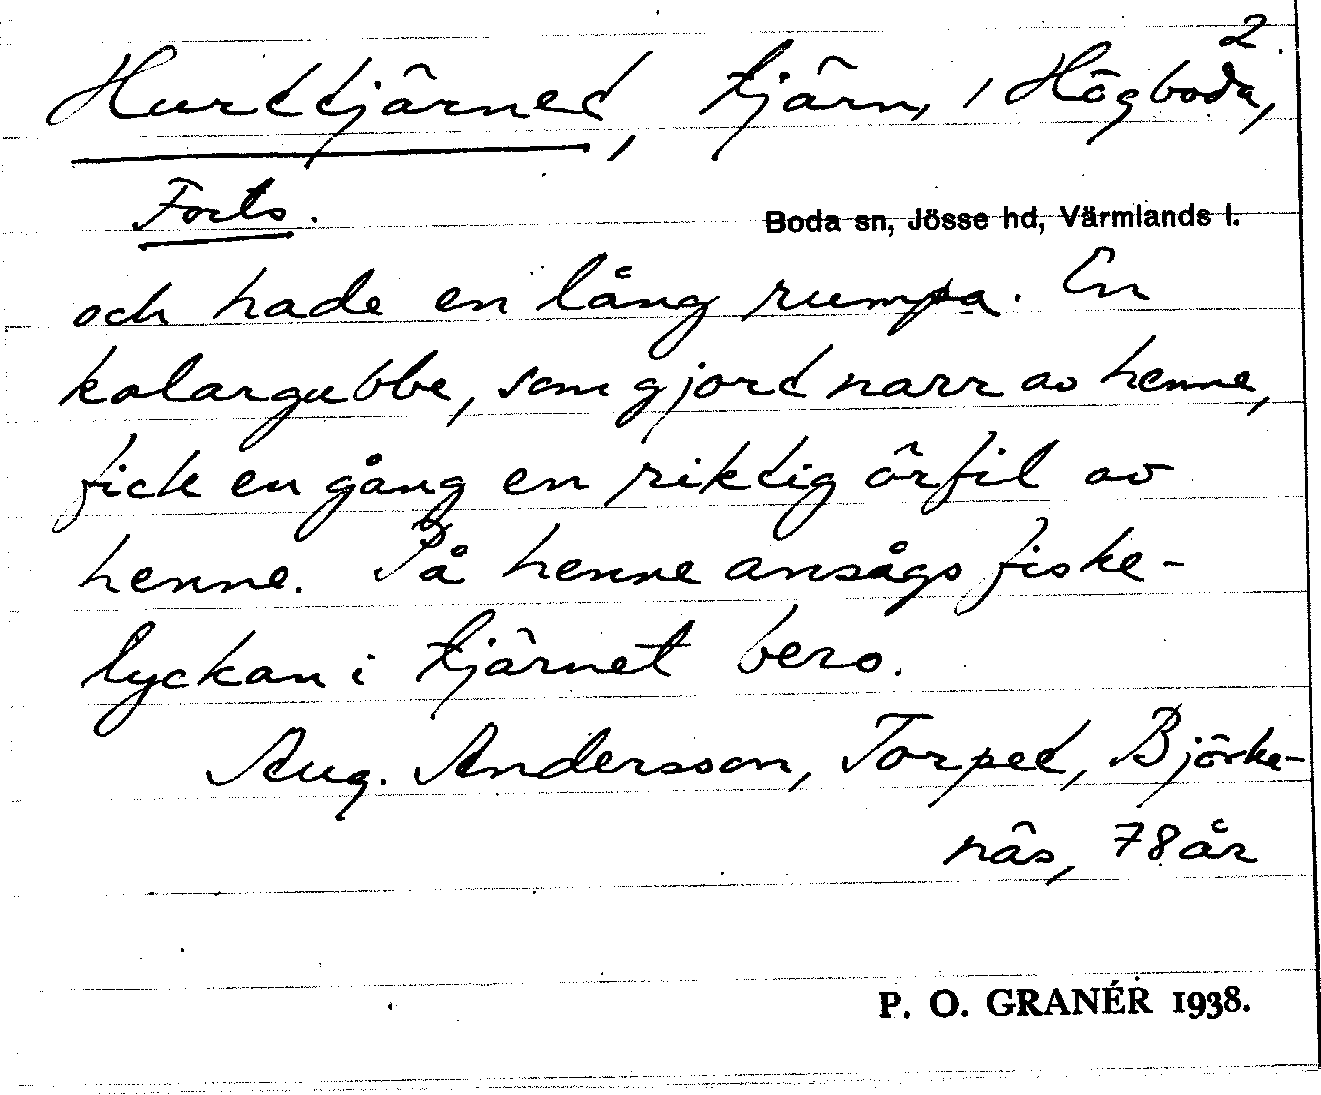 2.
Hurttjärnet, tjärn, i Högboda,
Forts.
Boda sn, Jösse hd, Värmlands l.
och hade en lång rumpa. En
kolargubbe, som gjort narr av henne,
fick en gång en riktig örfil av
henne. På henne ansågs fiske-
lyckan i tjärnet bero.
Aug. Andersson, Torpet, Björke-
näs, 78 år
P. O. GRANÉR 1938.